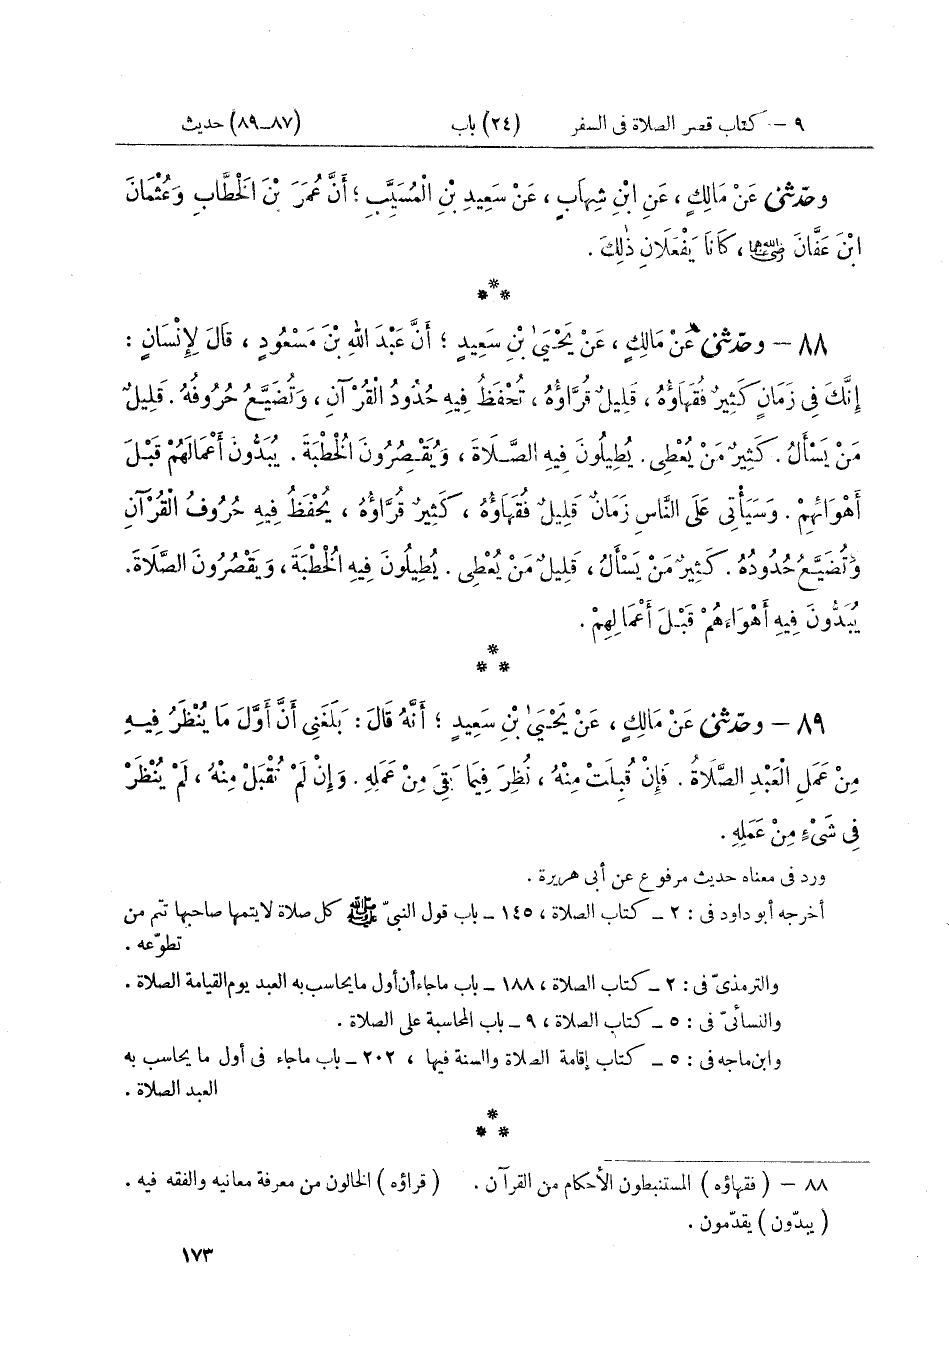 ٩ – كتاب قصر الصلاة فى السفر (٢٤) باب (٨٧–٨٩) حديث
وحدّثنى عَنْ مَالِكٍ ، عَنِ ابْنِ شِهَابٍ ، عَنْ سَعِيدِ بْنِ الْمُسَيَّبِ ؛ أَنَّ عُمَرَ بْنَ الْخَطَّابِ وَعُثْمَانَ
ابْنَ عَفَّانَ رضي الله عنهما ، كَانَا يَفْعَلَانِ ذٰلِكَ .
***
٨٨ – وحدّثنى عَنْ مَالِكٍ ، عَنْ يَحْيَىٰ بْنِ سَعِيدٍ ؛ أَنَّ عَبْدَ اللهِ بْنَ مَسْعُودٍ ، قَالَ لِإِنْسَانٍ :
إِنَّكَ فِى زَمَانٍ كَثِيرٌ فُقَهَاؤُهُ ، قَلِيلٌ قُرَّاؤُهُ ، تُحْفَظُ فِيهِ حُدُودُ الْقُرْآنِ ، وَتُضَيَّعُ حُرُوفُهُ . قَلِيلٌ
مَنْ يَسْأَلُ . كَثِيرٌ مَنْ يُعْطِى . يُطِيلُونَ فِيهِ الصَّلَاةَ ، وَيُقْصِرُونَ الْخُطْبَةَ . يُبَدُّونَ أَعْمَالَهُمْ قَبْلَ
أَهْوَائِهِمْ . وَسَيَأْتِى عَلَى النَّاسِ زَمَانٌ قَلِيلٌ فُقَهَاؤُهُ ، كَثِيرٌ قُرَّاؤُهُ ، يُحْفَظُ فِيهِ حُرُوفُ الْقُرْآنِ
وَتُضَيَّعُ حُدُودُهُ . كَثِيرٌ مَنْ يَسْأَلُ ، قَلِيلٌ مَنْ يُعْطِى . يُطِيلُونَ فِيهِ الْخُطْبَةَ ، وَيَقْصُرُونَ الصَّلَاةَ.
يُبَدُّونَ فِيهِ أَهْوَاءَهُمْ قَبْلَ أَعْمَالِهِمْ .
***
٨٩ – وحدّثنى عَنْ مَالِكٍ ، عَنْ يَحْيَىٰ بْنِ سَعِيدٍ ؛ أَنَّهُ قَالَ : بَلَغَنِى أَنَّ أَوَّلَ مَا يُنْظَرُ فِيهِ
مِنْ عَمَلِ الْعَبْدِ الصَّلَاةُ . فَإِنْ قُبِلَتْ مِنْهُ ، نُظِرَ فِيمَا بَقِىَ مِنْ عَمَلِهِ . وَإِنْ لَمْ تُقْبَلْ مِنْهُ ، لَمْ يُنْظَرْ
فِى شَىْءٍ مِنْ عَمَلِهِ .
ورد فى معناه حديث مرفوع عن أبى هريرة .
أخرجه أبو داود فى : ٢ – كتاب الصلاة ، ١٤٥ – باب قول النبىّ ﷺ كل صلاة لايتمها صاحبها تتم من
تطوّعه .
والترمذىّ فى : ٢ – كتاب الصلاة ، ١٨٨ – باب ماجاء أن أول مايحاسب به العبد يوم القيامة الصلاة .
والنسائىّ فى : ٥ – كتاب الصلاة ، ٩ – باب المحاسبة على الصلاة .
وابن ماجه فى : ٥ – كتاب إقامة الصلاة والسنة فيها ، ٢٠٢ – باب ماجاء فى أول ما يحاسب به
العبد الصلاة .
***
٨٨ – ( فقهاؤه ) المستنبطون الأحكام من القرآن . ( قراؤه ) الخالون من معرفة معانيه والفقه فيه .
( يبدّون ) يقدّمون .
١٧٣